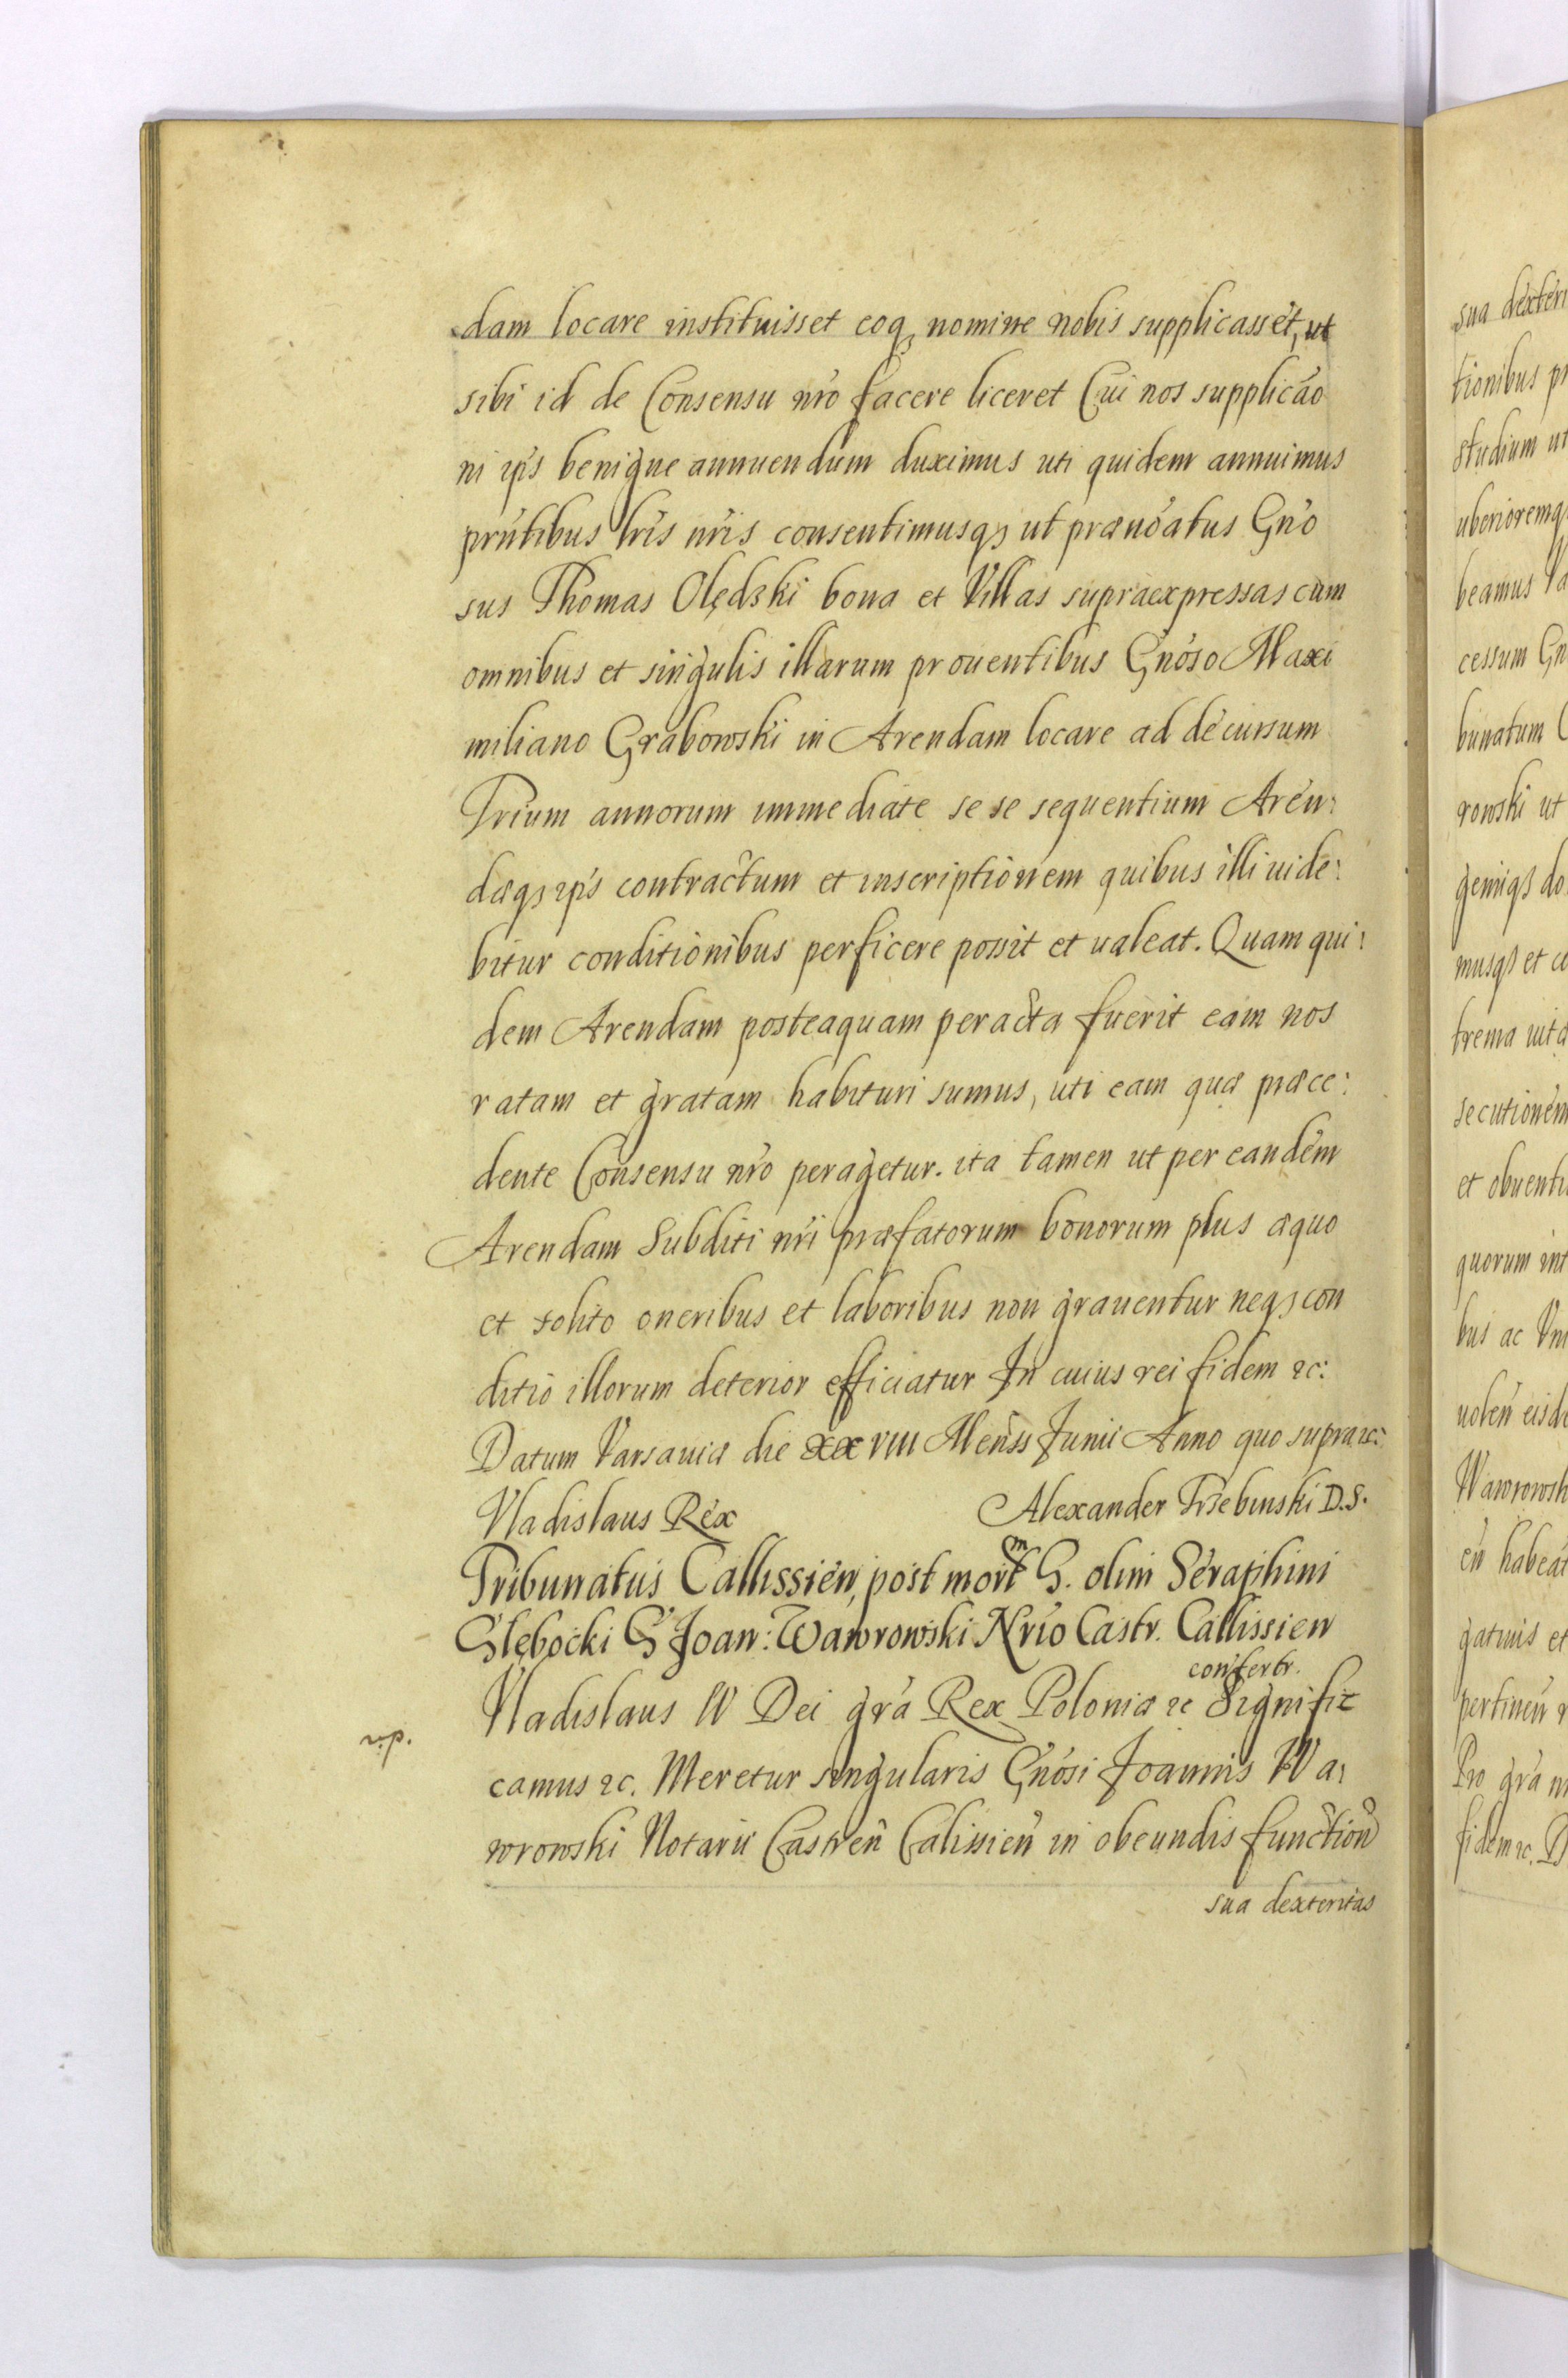 dam locare instituisset eoq₃ nomine nobis supplicasset, ut
sibi id de Consensu nr̃o facere liceret Cui nos supplicão
ni ip̃s benigne annuendum duximus uti quidem annuimus
prñtibus lr̃is nr̃is consentimusq₃ ut prænõatus Gño
sus Thomas Olędzki bona et Villas supraexpressas cum
omnibus et singulis illarum prouentibus Gnõso Maxi
miliano Grabowski in Arendam locare ad decursum
Trium annorum immediate se se sequentium Aren:
dæq₃ ip̃s contractum et inscriptionem quibus illi uide:
bitur conditionibus perficere possit et ualeat. Quam qui:
dem Arendam posteaquam peracta fuerit eam nos
ratam et gratam habituri sumus, uti eam quæ præce:
dente Consensu nr̃o peragetur. ita tamen ut per eandem
Arendam Subditi nr̃i præfatorum bonorum plus æquo
et solito oneribus et laboribus non grauentur neq₃ con
ditio illorum deterior efficiatur In cuius rei fidem ꝛc:
Datum Varsauiæ die XXVIII Meñss Junii Anno quo supra ꝛc:
Vladislaus Rex Alexander Trzebinski D.S.
Tribunatus Callissień, post mortm G. olim Seraphini
Głębocki G Joan: Wawrowski Nr̃io Castr. Callissien
confertr.
Vladislaus IV Dei grã Rex Poloniæ ꝛc Signifi
camus ꝛc. Meretur singularis Gñosi Joannis Wa:
wrowski Notarii Castreñ Calissieñ in obeundis function
sua dexteritas
sua dexteri
tionibus
studium ut
uberioremq
beamus
cessum Gn
bunatum
rowski ut
geniq₃ do
musq₃ et co
trema uitæ
secutionem
et obuenti
quorum int
bus ac
uoleñ eisd
Wawrowsk
eñ habeat
gatiuis et
pertineñ
Pro grã
fidem ꝛc. D